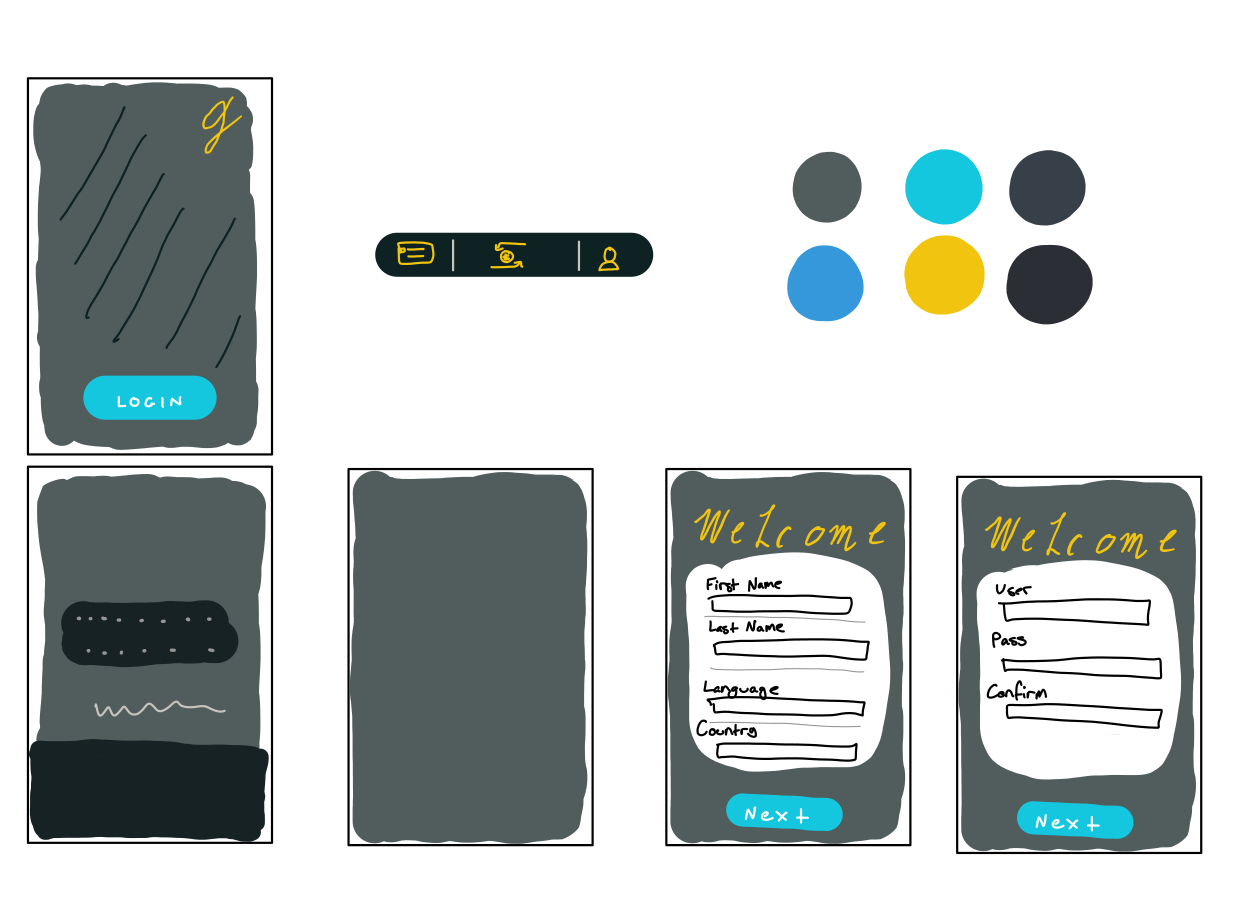 g
LOGIN
Welcome
First Name
Last Name
Language
Country
Next
Welcome
User
Pass
Confirm
Next